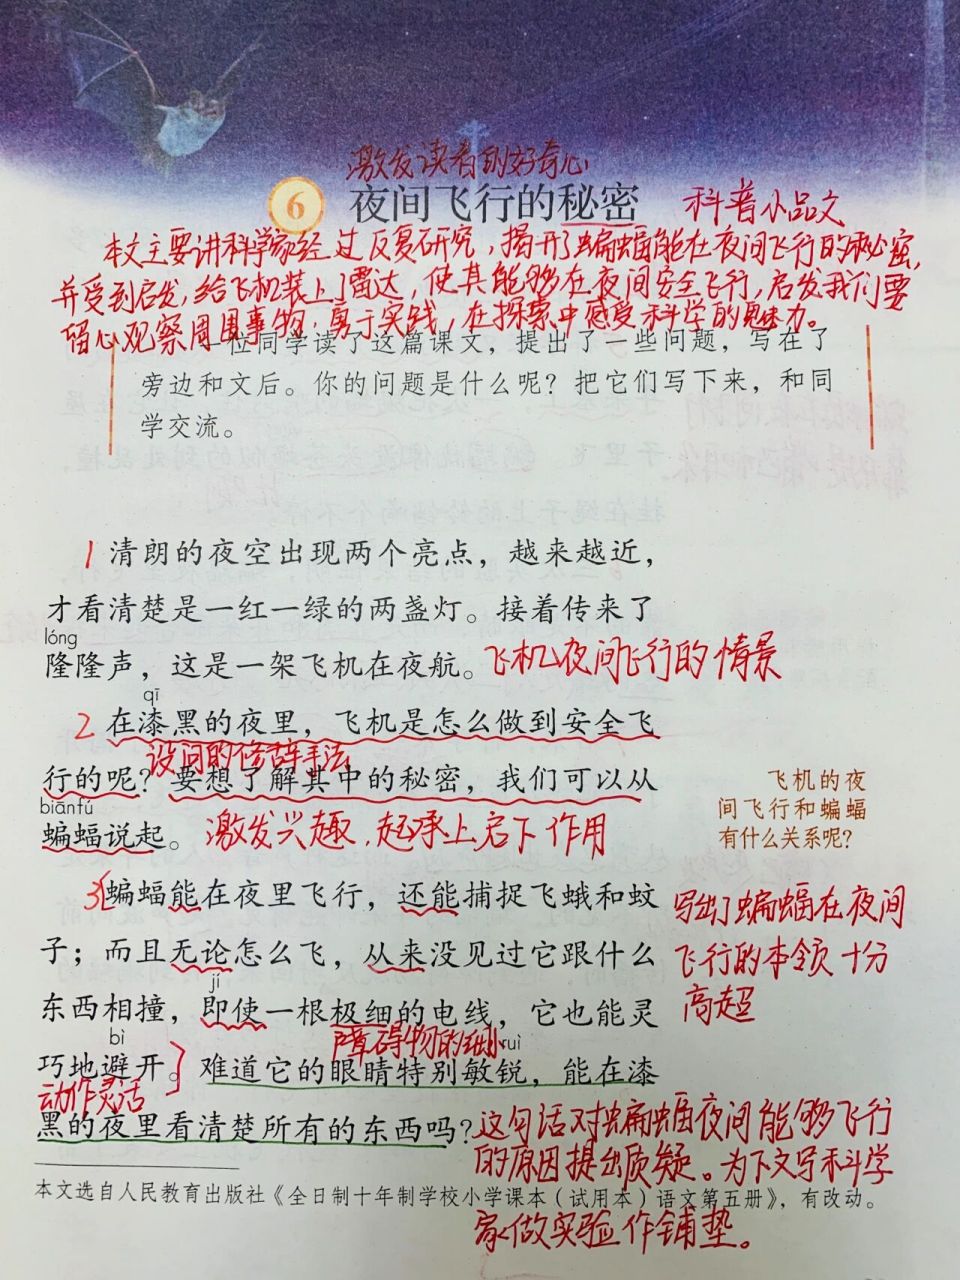 激发读者的好奇心
6 夜间飞行的秘密 科普小品文
本文主要讲科学家经过反复研究，揭开了蝙蝠能在夜间飞行的秘密，
并受到启发，给飞机装上了雷达，使其能够在夜间安全飞行，启发我们要
留心观察周围事物，勇于实践，在探索中感受科学的魅力。
一位同学读了这篇课文，提出了一些问题，写在了
旁边和文后。你的问题是什么呢？把它们写下来，和同
学交流。
1 清朗的夜空出现两个亮点，越来越近，
才看清楚是一红一绿的两盏灯。接着传来了
lóng
隆隆声，这是一架飞机在夜航。飞机夜间飞行的情景
qī
2 在漆黑的夜里，飞机是怎么做到安全飞
设问的修辞手法
行的呢？要想了解其中的秘密，我们可以从
biānfú
蝙蝠说起。 激发兴趣，起承上启下作用
飞机的夜
间飞行和蝙蝠
有什么关系呢？
3 蝙蝠能在夜里飞行，还能捕捉飞蛾和蚊
子；而且无论怎么飞，从来没见过它跟什么
jí
东西相撞，即使一根极细的电线，它也能灵
写出了蝙蝠在夜间
飞行的本领十分
高超
障碍物的细小
bì ruì
巧地避开。难道它的眼睛特别敏锐，能在漆
动作灵活
黑的夜里看清楚所有的东西吗？
这句话对蝙蝠夜间能够飞行
的原因提出质疑。为下文写科学
家做实验作铺垫。
本文选自人民教育出版社《全日制十年制学校小学课本（试用本）语文第五册》，有改动。